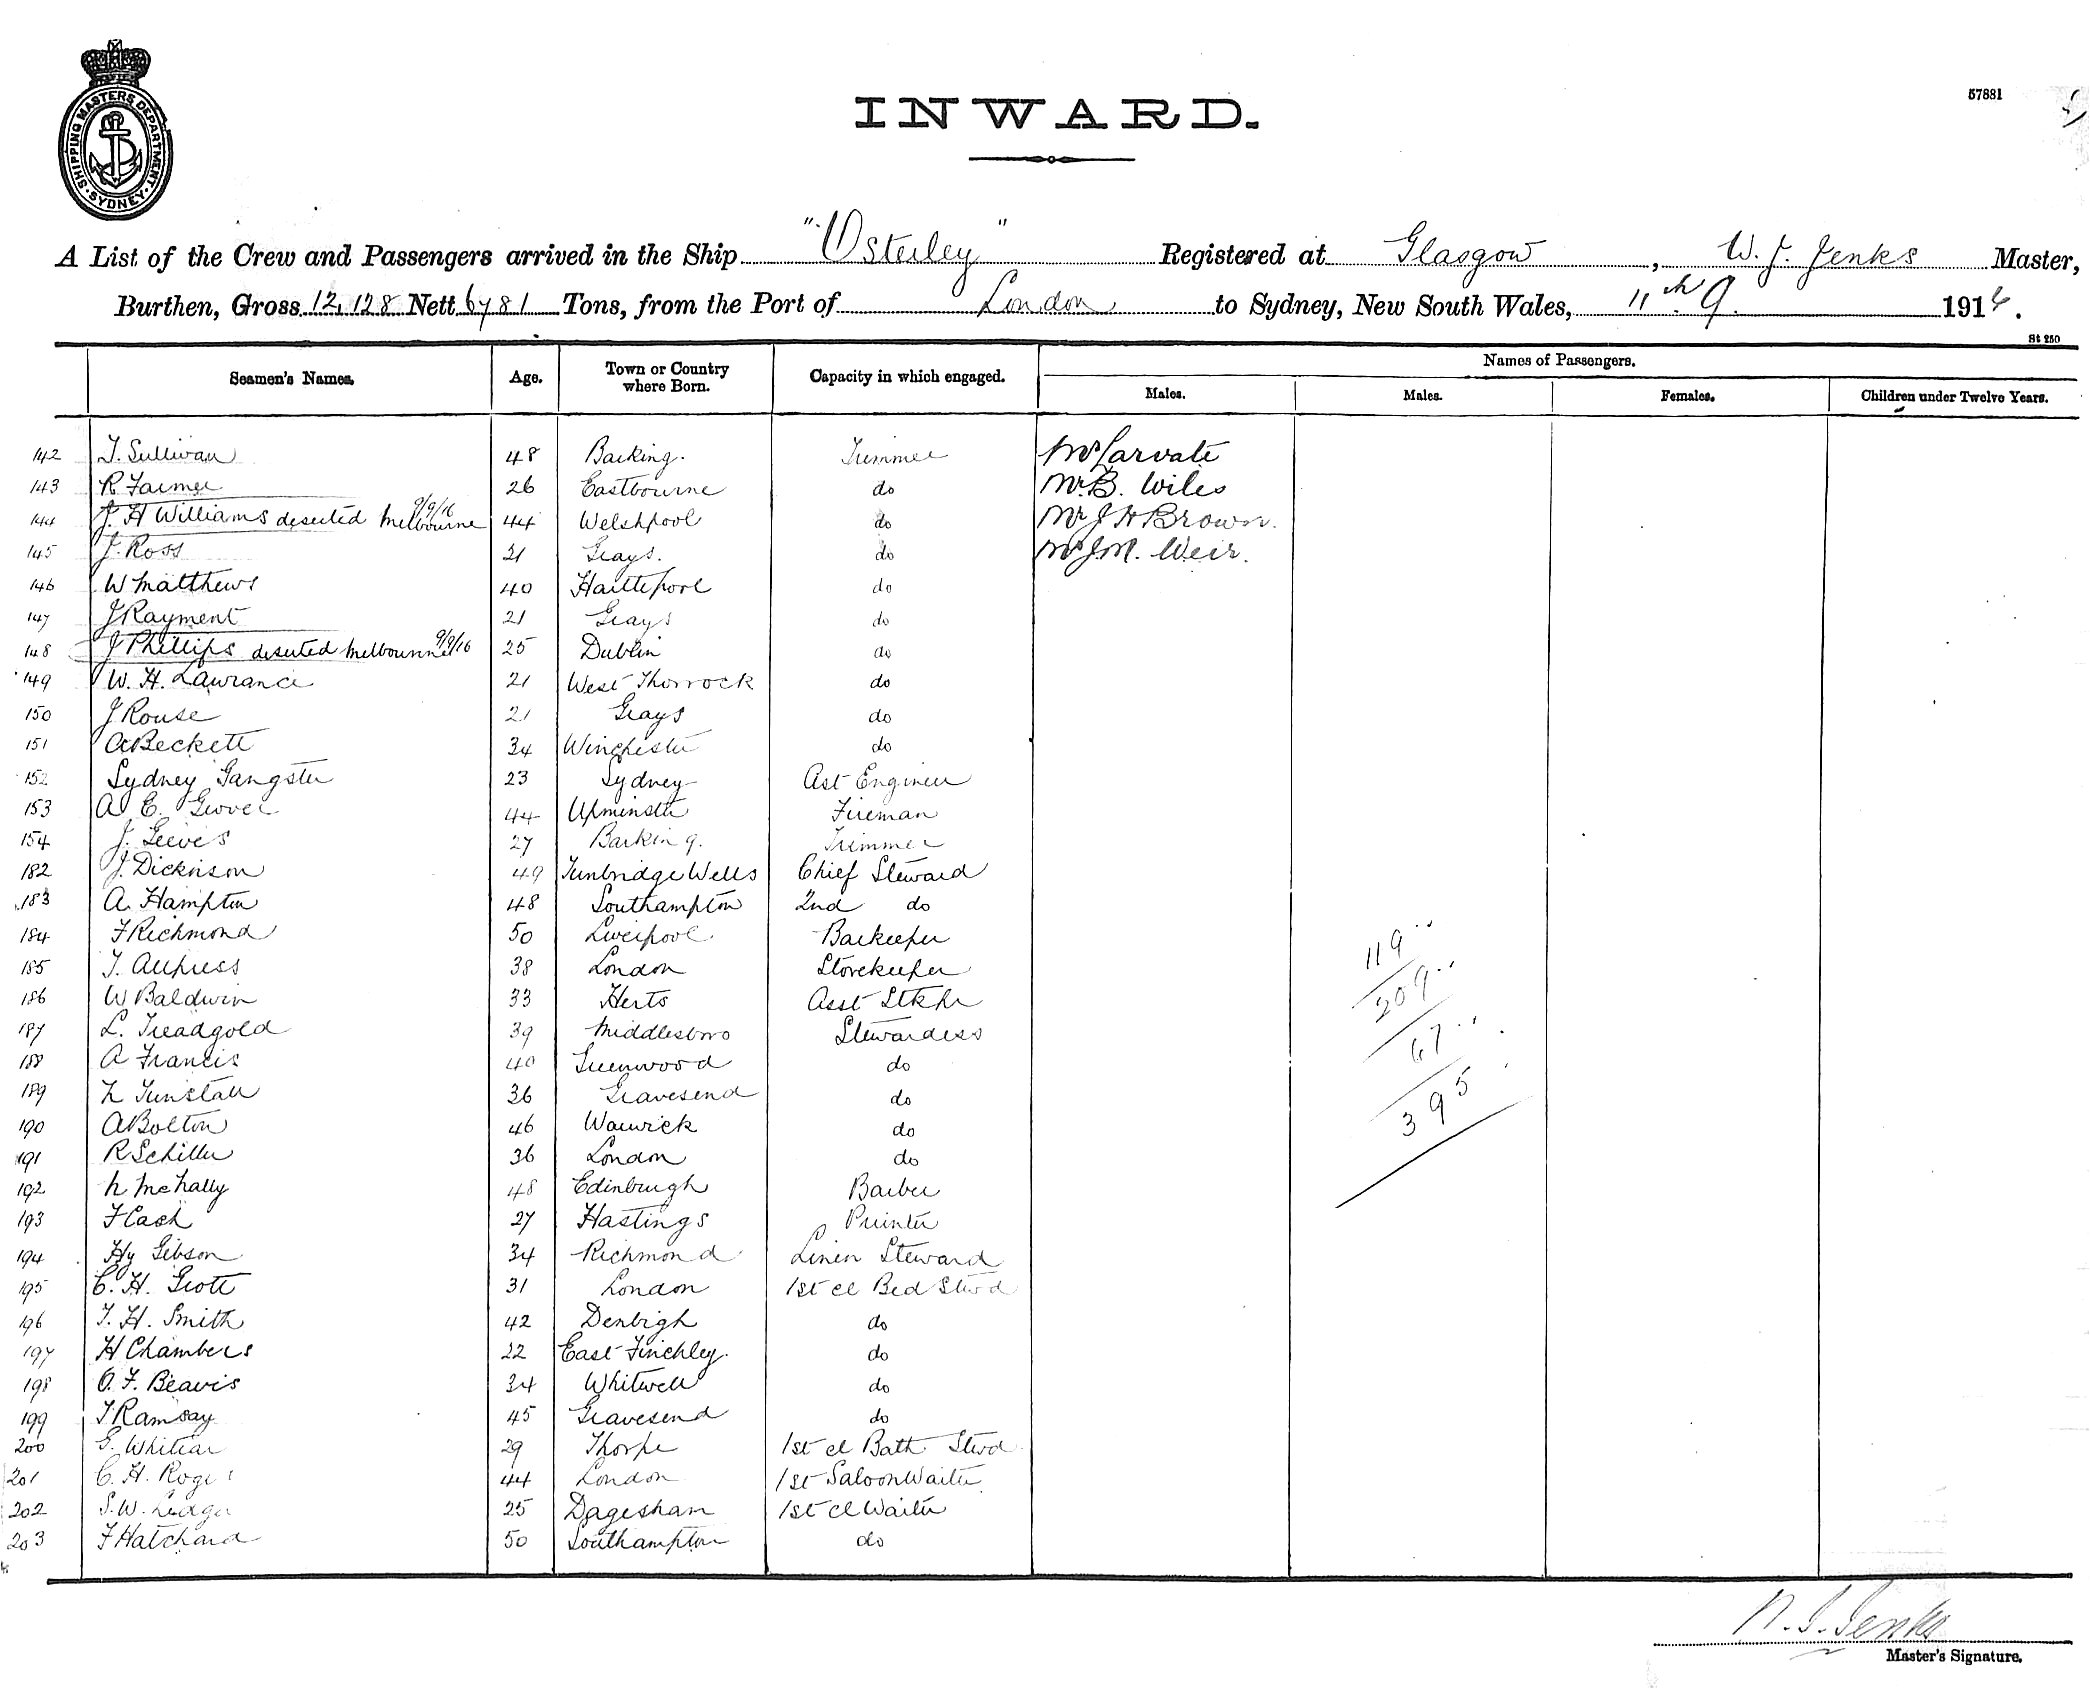 SHIPPING MASTERS DEPARTMENT
SYDNEY
57881
INWARD.
A List of the Crew and Passengers arrived in the Ship "Osterley" Registered at Glasgow, W. J. Jenks Master,
Burthen, Gross 12,128 Nett 6781 Tons, from the Port of London to Sydney, New South Wales, 11th 9. 1916.
St 250
Seamen's Names. Age. Town or Country where Born. Capacity in which engaged. Names of Passengers.
Males. Males. Females. Children under Twelve Years.
142 T. Sullivan 48 Barking. Trimmer Mr Larvate
143 R Farmer 26 Eastbourne do Mr. B. Wiles
144 J. H Williams deserted Melbourne 9/9/16 44 Welshpool do Mr J H Brown.
145 J. Ross 21 Grays. do Mr J. M. Weir.
146 W Matthews 40 Hartlepool do
147 J Rayment 21 Grays do
148 J Phillips deserted Melbourne 9/9/16 25 Dublin do
149 W. H. Lawrance 21 West Thorrock do
150 J Rouse 21 Grays do
151 A Beckett 34 Winchester do
152 Sydney Gangster 23 Sydney Ast Engineer
153 A E. Grover 44 Upminster Fireman
154 J. Reeves 27 Barking. Trimmer
182 J. Dickinson 49 Tunbridge Wells Chief Steward
183 A. Hampton 48 Southampton 2nd do
184 F Richmond 50 Liverpool Barkeeper
185 T. Allpress 38 London Storekeeper
186 W Baldwin 33 Herts Asst Stkpr
187 L. Treadgold 39 Middlesboro Stewardess
188 A Francis 40 Greenwood do
189 Tunstall 36 Gravesend do
190 A Bolton 46 Warwick do
191 R Schiller 36 London do
192 N McNally 48 Edinburgh Barber
193 F Cash 27 Hastings Printer
194 Hy Gibson 34 Richmond Linen Steward
195 C. H. Grott 31 London 1st cl Bed Stwd
196 T. H. Smith 42 Denbigh do
197 H Chambers 22 East Finchley. do
198 O. F. Beavis 34 Whitwell do
199 T Ramsay 45 Gravesend do
200 G. Whitear 29 Thorpe 1st cl Bath Stwd
201 C. H. Roger 44 London 1st Saloon Waiter
202 S. W. Ledger 25 Dagesham 1st cl Waiter
203 F Hatchard 50 Southampton do
119
209
67
395
W. J. Jenks
Master's Signature.